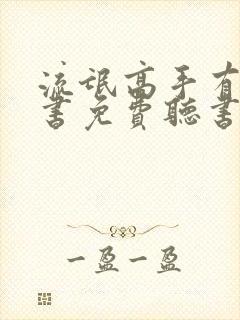 流氓高手有
书免费聽书
一盈一盈